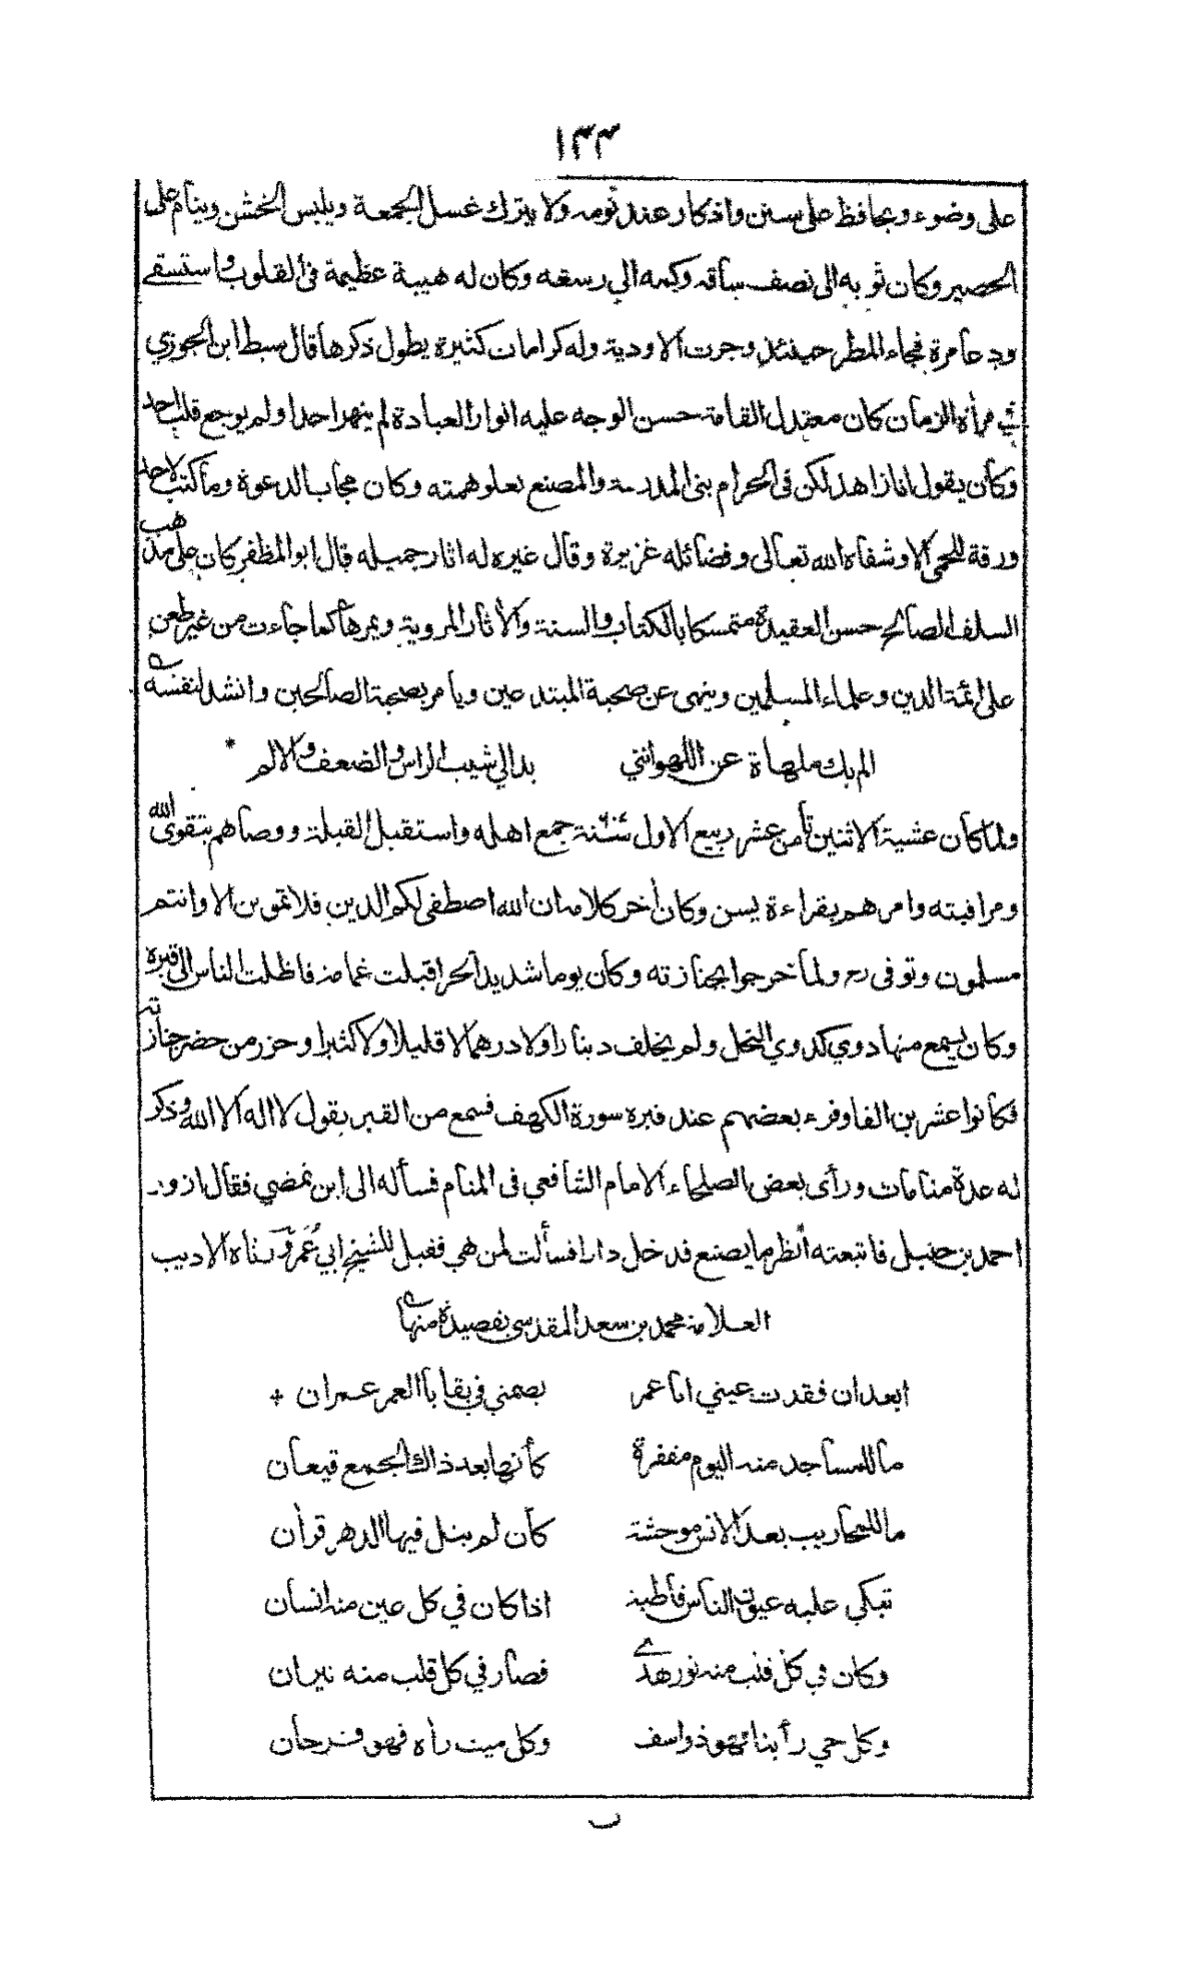 ١٣٣
على وضوء ويحافظ على سنن واذكار عند نومه ولا يترك غسل الجمعة ويلبس الخشن وينام على
الحصير وكان ثوبه الى نصف ساقه وكمه الى رسغه وكان له هيبة عظيمة فى القلوب واستسقے
ودعا مرة فجاء المطر حينئذ وجرت الاودية وله كرامات كثيرة يطول ذكرها قال سبط ابن الجوزي
في مرأة الزمان كان معتدل القامة حسن الوجه عليه انوار العبادة لم ينهر احدا ولم يوجع قلب احد
وكان يقول انا زاهد لكن فى الحرام بنى المدرسة والمصنع بعلو همته وكان مجاب الدعوة وما كتب لاحد
ورقة للحمى الا وشفاه الله تعالى وفضائله غزيرة وقال غيره له اثار جميله قال ابو المظفر كان على مذهب
السلف الصالح حسن العقيدة متمسكا بالكتاب والسنة والأثار المروية ويمرها كما جاءت من غير طعن
على ائمة الدين وعلماء المسلمين وينهى عن صحبة المبتدعين ويامر بصحبة الصالحين وانشد لنفسه
الم يك ملهاة عن اللهو اننى بدا لي شيب الراس والضعف والالم *
ولما كان عشية الاثنين ثامن عشر ربيع الاول سنة جمع اهله واستقبل القبلة ووصاهم بتقوى الله
ومراقبته وامرهم بقراءة يسن وكان أخر كلامه ان الله اصطفى لكم الدين فلا تموتن الا وانتم
مسلمون وتوفى رح ولما خرجوا بجنازته وكان يوما شديد الحر اقبلت غمامة فاظلت الناس الى قبره
وكان يسمع منها دوي كدوي النحل ولم يخلف دينارا ولا درهما لا قليلا ولا كثيرا وحزر من حضر جنازته
فكانوا عشرين الفا وقرء بعضهم عند قبره سورة الكهف فسمع من القبر يقول لا اله الا الله وذكر
له عدة منامات ورأى بعض الصلحاء الامام الشافعي فى المنام فسأله الى اين تمضي فقال ازور
احمد بن حنبل فاتبعته أنظر ما يصنع فدخل دارا فسألت لمن هي فقيل للشيخ ابي عُمر ورثاه الاديب
العلامة محمد بن سعد المقدسى بقصيدة منها
ابعد ان فقدت عيني ابا عمر يضمني في بقايا العمر عمران +
ما للمساجد منه اليوم مقفرة كأنها بعد ذاك الجمع قيعان
ما للمحاريب بعد الانس موحشة كأن لم يتل فيها الدهر قرأن
تبكي عليه عيون الناس قاطبة اذا كان في كل عين منه انسان
وكان في كل قلب منه نور هدے فصار في كل قلب منه نيران
وكل حي رأينا فهو ذو اسف وكل ميت رأه فهو فرحان
ب